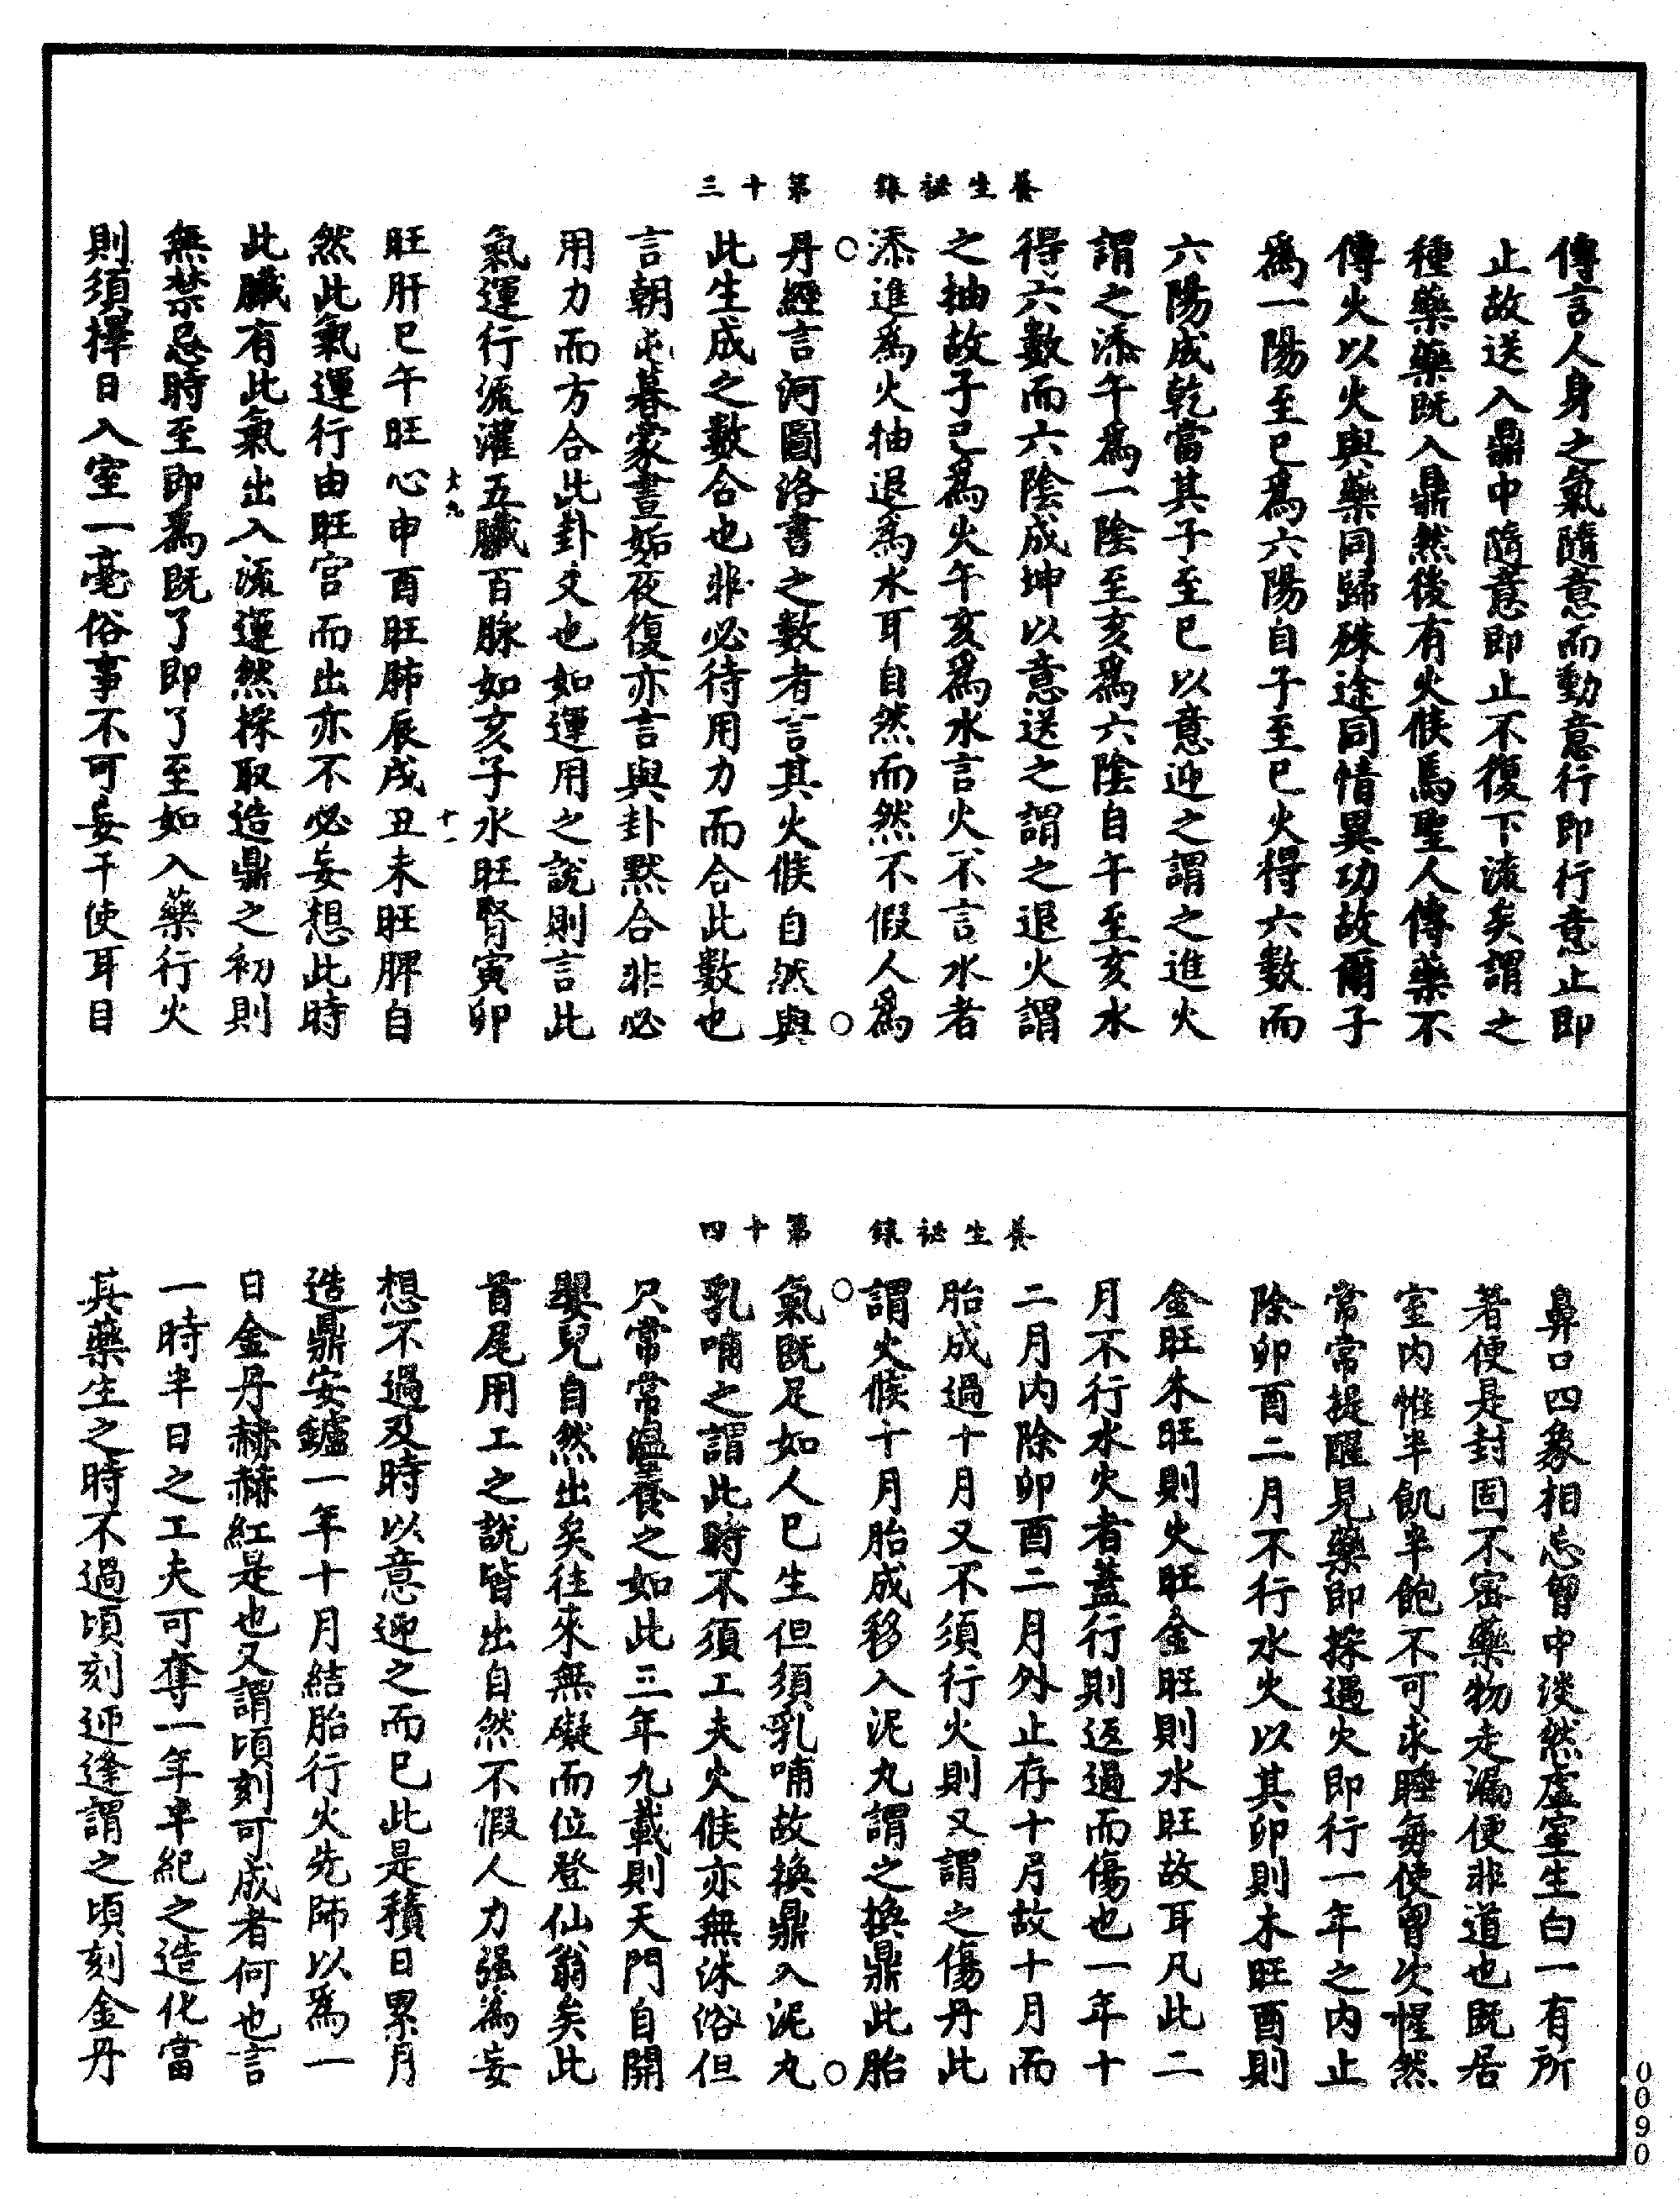 養生祕錄　第十三
傳言人身之氣隨意而動意行即行意止即
止故送入鼎中隨意即止不復下流矣謂之
種藥藥既入鼎然後有火候焉聖人傳藥不
傳火以火與藥同歸殊途同情異功故爾子
爲一陽至巳爲六陽自子至巳火得六數而
六陽成乾當其子至巳以意迎之謂之進火
謂之添午爲一陰至亥爲六陰自午至亥水
得六數而六陰成坤以意送之謂之退火謂
之抽故子巳爲火午亥爲水言火不言水者
添進爲火抽退爲水耳自然而然不假人爲
丹經言河圖洛書之數者言其火候自然與
此生成之數合也非必待用力而合此數也
言朝屯暮蒙晝姤夜復亦言與卦默合非必
用力而方合此卦爻也如運用之說則言此
氣運行流灌五臟百脉如亥子水旺腎寅卯
大九
十一
旺肝巳午旺心申酉旺肺辰戌丑未旺脾自
然此氣運行由旺宮而出亦不必妄想此時
此臟有此氣出入流運然採取造鼎之初則
無禁忌時至即爲既了即了至如入藥行火
則須擇日入室一毫俗事不可妄干使耳目
養生祕錄　第十四
鼻口四象相忘胷中淡然虛室生白一有所
著便是封固不密藥物走漏便非道也既居
室內惟半飢半飽不可求睡每使胷次惺然
常常提醒見藥即採遇火即行一年之內止
除卯酉二月不行水火以其卯則木旺酉則
金旺木旺則火旺金旺則水旺故耳凡此二
月不行水火者蓋行則返過而傷也一年十
二月內除卯酉二月外止存十月故十月而
胎成過十月又不須行火則又謂之傷丹此
謂火候十月胎成移入泥丸謂之換鼎此胎
氣既足如人已生但須乳哺故換鼎入泥丸
乳哺之謂此時不須工夫火候亦無沐浴但
只常常溫養之如此三年九載則天門自開
嬰兒自然出矣往來無礙而位登仙翁矣此
首尾用工之說皆出自然不假人力强爲妄
想不過及時以意迎之而已此是積日累月
造鼎安鑪一年十月結胎行火先師以爲一
日金丹赫赫紅是也又謂頃刻可成者何也言
一時半日之工夫可奪一年半紀之造化當
其藥生之時不過頃刻迎逢謂之頃刻金丹
0090